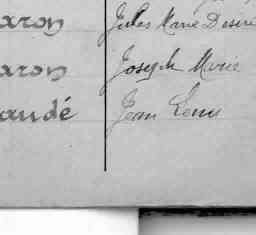 aron Jules Marie Desiré
aron Joseph Marie
audé Jean Louis